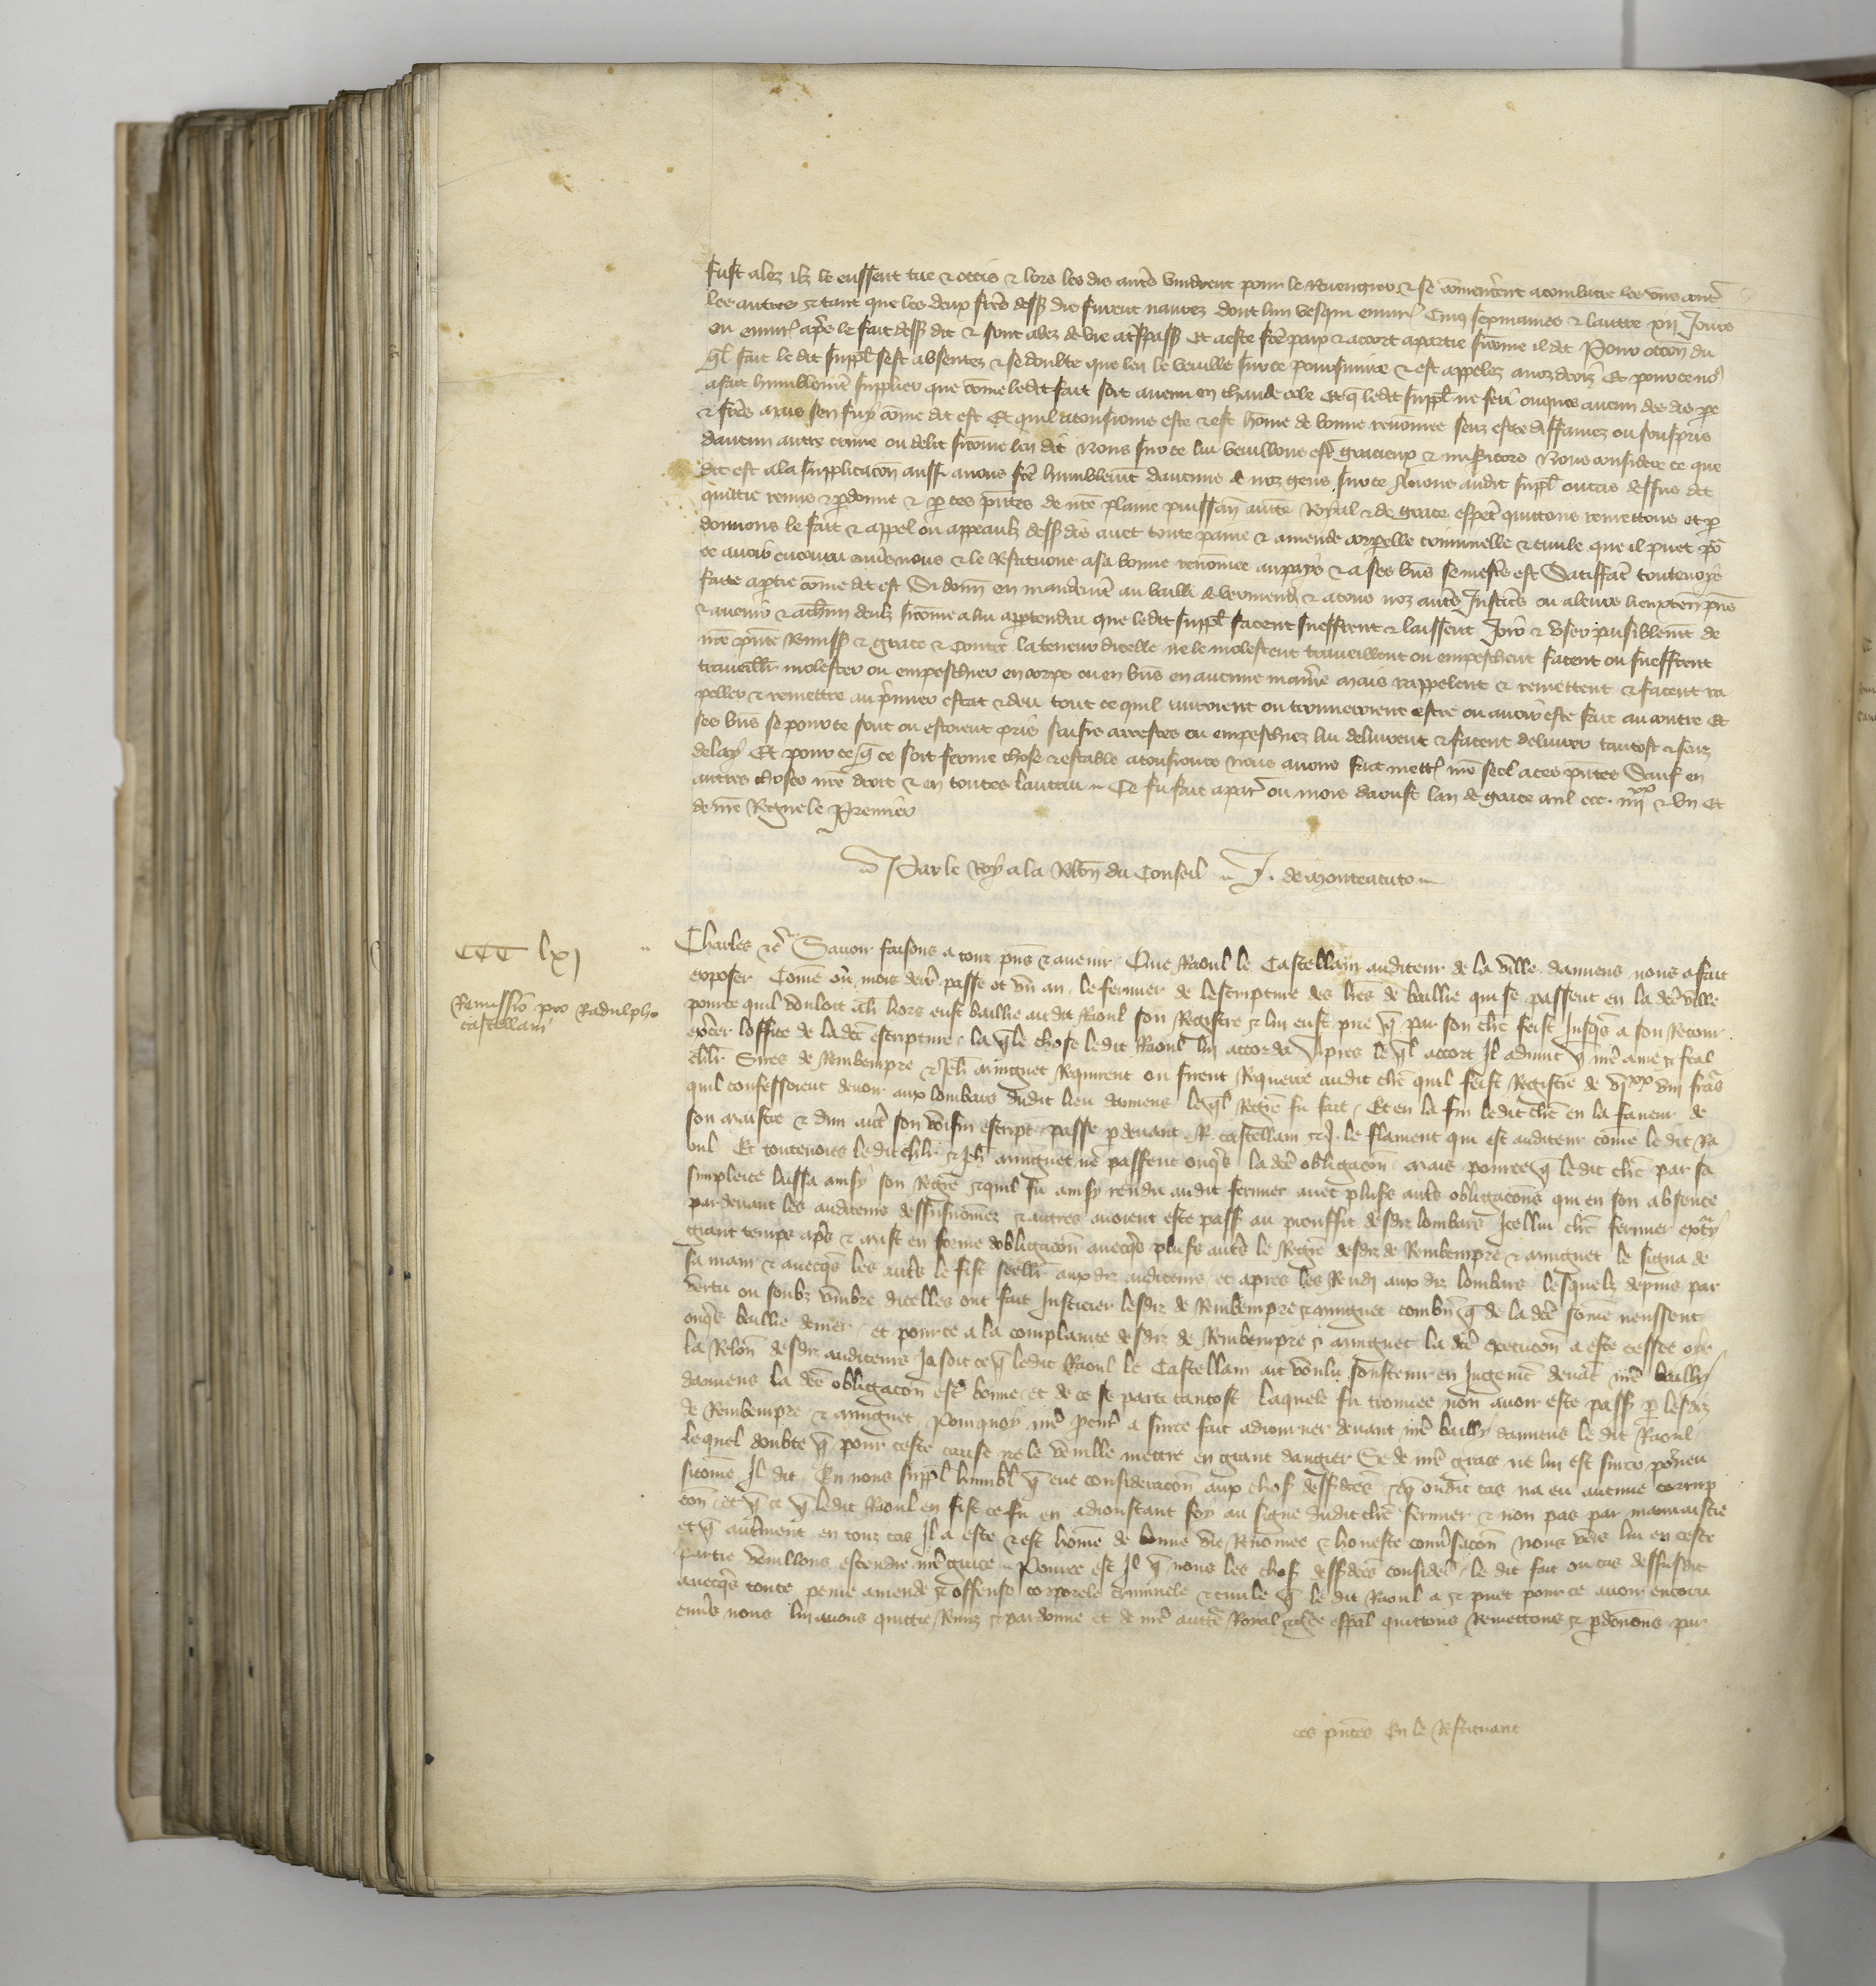 fust alez ilz le eussent tue & occis & lors les dis autres vindrent pour le revengier & se comencerent a combatre les uns contre
les autres & tant que les deux freres dess dis furent navrez dont lun vesqui environ Cinq sepmaines & lautre xvii Jours
ou environ apres le fait dess dit & sont alez de vie a trespass Et a este fete paix & accort a partie si come il dit Pour occon du
quel fait le dit suppl sest absentez & se doubte que len le veuille sur ce poursuivre & est appelez a noz drois Et pour ce nous
a fait humblement supplier que come ledit fait soit avenu en chaude cole Et que ledit suppl ne feri onques aucun des dis pere
& freres mais sen fuy come dit est Et quil a tousjours este & est home de bonne renomee senz estre diffamez ou souspris
daucun autre crime ou delit si come len dit Nous sur ce lui veuillons estre gracieux & misericors Nous considere ce que
dit est a la supplicacon aussi a nous fete humblement daucuns de noz gens sur ce Avons audit suppl ou cas dessus dit
quittie remis & pardonne & par ces pntes de nre plaine puissance aucte Royal & de grace especl quittons remettons et par
donnons le fait & appel ou appeaulx dess dis avec toute paine & amende corporelle criminelle & civile que il puet pour
ce avoir encouru envers nous & le Restituons a sa bonne renomee au pays & a ses biens se mestier est Satiffacion toutevoyes
faite a partie come dit est Si donn en mandement au bailli de vermend & a touz noz autres Justiciers ou a leurs lieuxten pns
& avenir & a chun deulz si come a lui appartendra que ledit suppl facent sueffrent & laissent Joir & user paisiblement de
nre pnte Remiss & grace & contre la teneur dicelle ne le molestent traveillent ou empeschent facent ou sueffrent
traveillier molester ou empeschier en corps ou en biens en aucune maniere mais rappelent & remettent & facent ra
peller & remettre au premier estat & deu tout ce quil auroient ou trouveroient estre ou avoir este fait au contre Et
ses biens se pour ce sont ou estoient pris saisis arrestes ou empeschiez lui delivrent & facent delivrer tantost & senz
delay Et pour ce que ce soit ferme chose & estable a tousjours nous avons fait mettre nre seel a ces pntes Sauf en
autres choses nre droit & en toutes lautrui Ce fu fait a paris ou mois daoust lan de grace mil ccc. iiii xx & un Et
de nre Regne le Premier
Par le Roy a la Relon du Conseil J. de monteacuto
CCC lxj
Remissio pro Radulpho
castellani
Charles &c Savoir faisons a touz pns & avenir Que Raoul le Castellain auditeur de la ville damiens nous a fait
exposer Come ou mois passe ot un an le fermier de lescripture des lres de baillie qui se passent en la dce ville
pource quil vouloit aler hors eust baillie audit Raoul son Registre & lui eust prie que par son clerc feist Jusques a son Retour
excer loffice de la dce escripture la quele chose ledit Raoul lui accorda Apres le quel accort Il advint que nre ame & feal
chlr Sires de Rembempre & Jeh maugnet Requirent ou firent Requerre audit clerc quil feist Registre de frans
quil confessoient devoir aux lombars dudit lieu damiens lequel Registre fu fait Et en la fin ledit clerc en la faveur de
son maistre & dun autre son voisin escript passe pdevant R. castellain & J. le flament qui est auditeur come le dit Ra
oul Et toutevoies ledit chlr & Jeh maugnet ne passerent onques la dce obligacon mais pource que ledit clerc par sa
simplece laissa ainsy son Registre & quil fu ainsy rendu audit fermier avec pluss autres obligacons qui en son absence
pardevant les auditeurs dessusnomez & autres avoient este pass au prouffit desdiz lombars Icellui clerc fermier
grant temps apres & mist en forme dobligacon avecques pluss autres le Registre desdiz de Rembempre & maugnet le signa de
sa main & avecques les autres le fist seeller aux diz auditeurs et apres les Rendi aux diz lombars lesquelz depuis par
vertu ou soubz umbre dicelles ont fait Justicier lesdiz de Rembempre & maugnet combien que de la dce some neussent
onques baillie denier et pource a la complainte desdiz de Rembempre & maugnet la dce execucon a este cessee oye
la Relon desdiz auditeurs Ja soit ce que ledit Raoul le Castellain ait voulu soustenir en Jugement devant nre bailly
damiens la dce obligacon estre bonne et de ce se parti tantost laquele fu trouvee non avoir este pass p lesdiz
de Rembempre & maugnet Pourquoy nre a sur ce fait adjourner devant nre bailly damiens le dit Raoul
lequel doubte que pour ceste cause ne le veuille mettre en grant dangier Se de nre grace ne lui est sur ce porveu
sicome Il dit En nous suppl humbl que eue consideracon aux chos dessdces & que ou dit cas na eu aucune corrup
con et que ce que ledit Raoul en fist ce fu en adjoustant foy au signe dudit clerc fermier & non pas par mauvaistie
et que autrement en touz cas Il a este & est home de bonne vie Renomee & honeste conversacon Nous vers lui en ceste
partie veuillons estendre nre grace Pource est Il que nous les chos dessdces considerees le dit fait ou cas dessusdit
avecques toute peine amende & offense corporele criminele & civile que le dit Raoul a & puet pour ce avoir encouru
envers nous lui avons quittie Remis & pardonne et de nre auctorite Royal & grace espal quittons Remettons & pdonons par
ces pntes En le Restituant